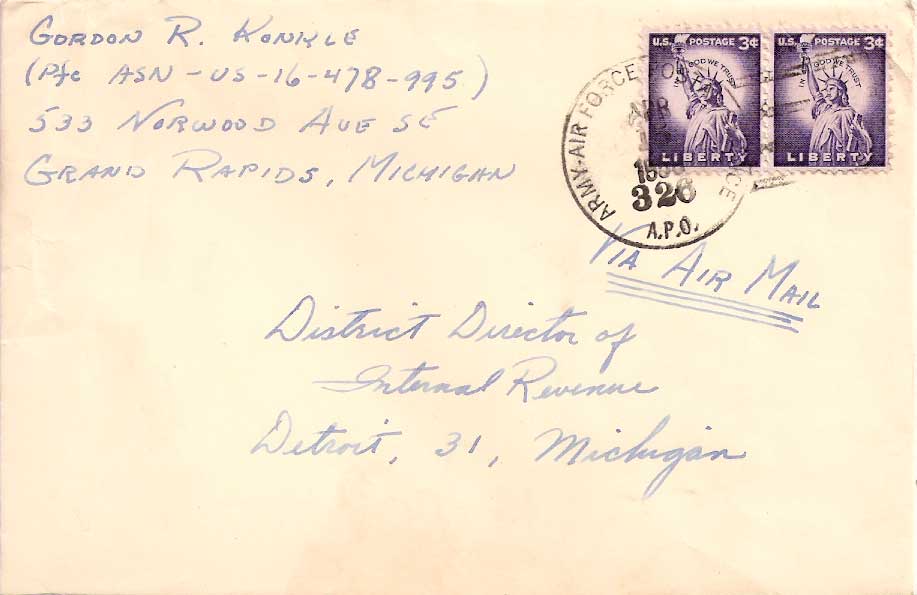 Gordon R. Konkle
(Pfc ASN-US-16-478-995)
533 Norwood Ave SE
Grand Rapids, Michigan
U.S. POSTAGE 3¢
IN GOD WE TRUST
LIBERTY
U.S. POSTAGE 3¢
IN GOD WE TRUST
LIBERTY
ARMY-AIR FORCE
APR
326
A.P.O.
Via Air Mail
District Director of
Internal Revenue
Detroit, 31, Michigan